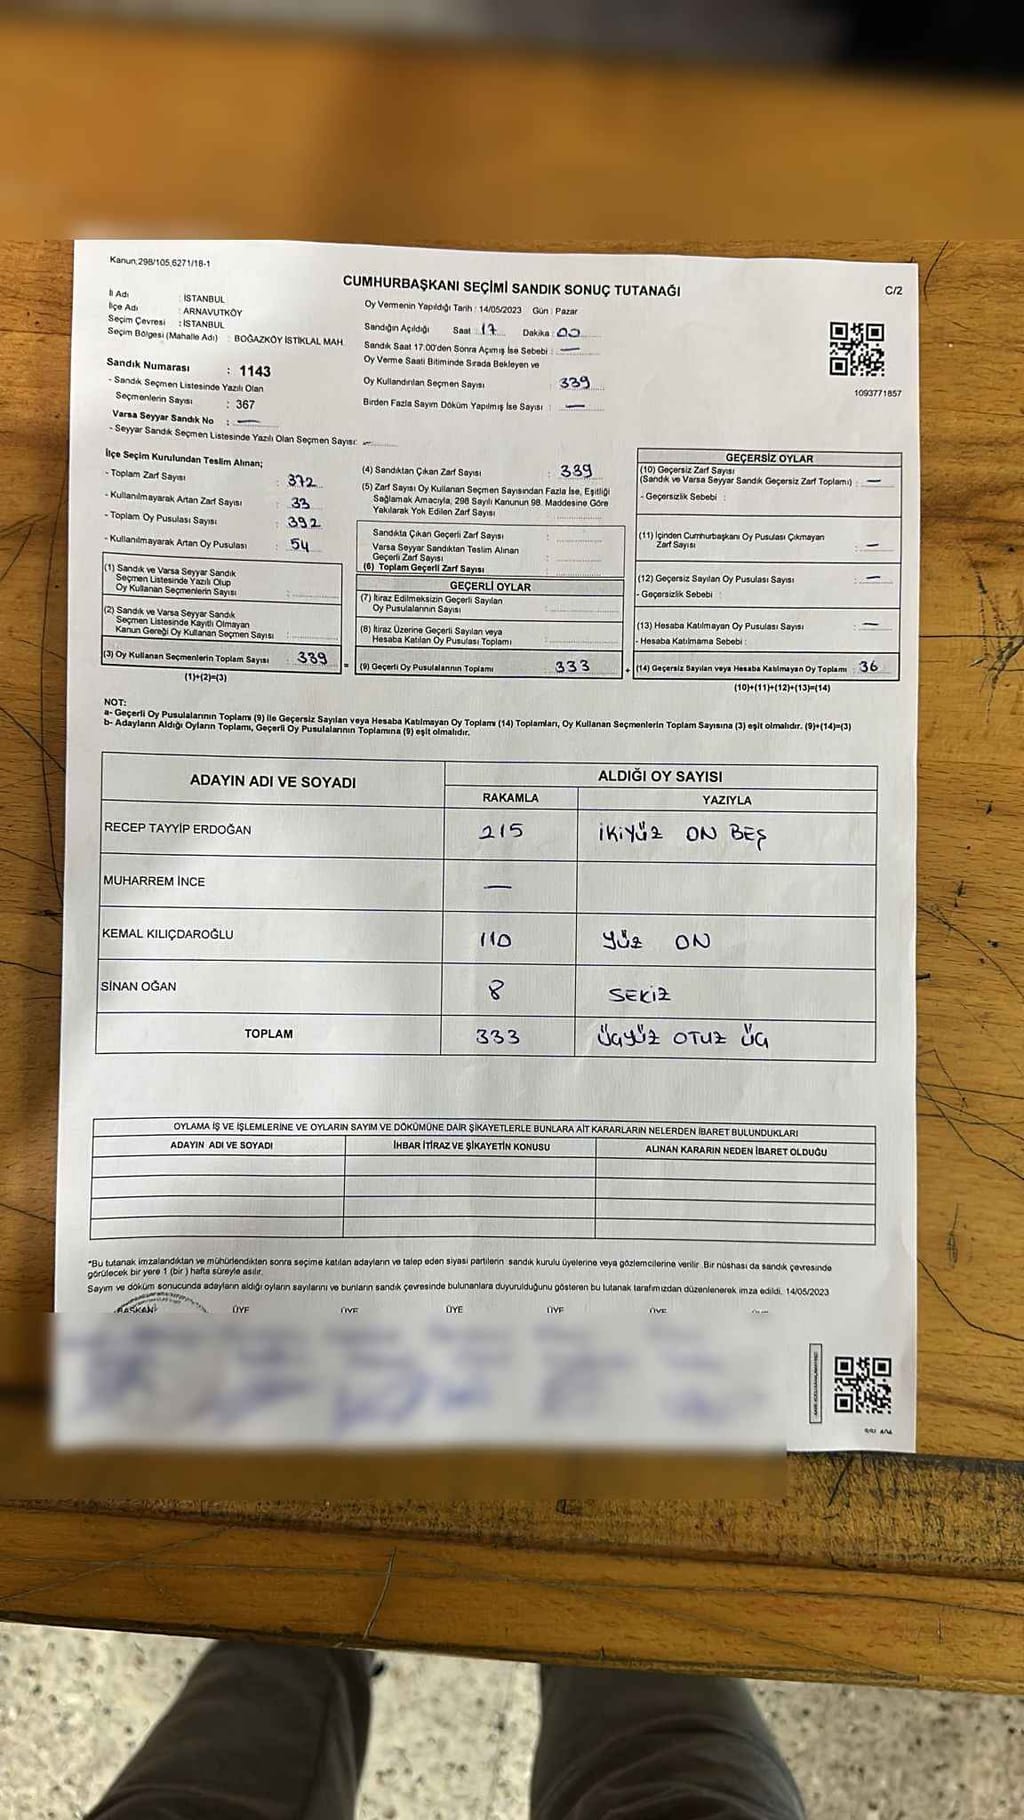 Kanun,298/105,6271/18-1
CUMHURBAŞKANI SEÇİMİ SANDIK SONUÇ TUTANAĞI
C/2
İl Adı : İSTANBUL
İlçe Adı : ARNAVUTKÖY
Seçim Çevresi : İSTANBUL
Seçim Bölgesi (Mahalle Adı) : BOĞAZKÖY İSTİKLAL MAH.
Oy Vermenin Yapıldığı Tarih : 14/05/2023 Gün : Pazar
Sandığın Açıldığı Saat : 17 Dakika : 00
Sandık Saat 17.00'den Sonra Açımış İse Sebebi : —
Oy Verme Saati Bitiminde Sırada Bekleyen ve
Oy Kullandırılan Seçmen Sayısı : 339
Birden Fazla Sayım Döküm Yapılmış İse Sayısı : —
1093771857
Sandık Numarası : 1143
- Sandık Seçmen Listesinde Yazılı Olan
Seçmenlerin Sayısı : 367
Varsa Seyyar Sandık No : —
- Seyyar Sandık Seçmen Listesinde Yazılı Olan Seçmen Sayısı: —
İlçe Seçim Kurulundan Teslim Alınan;
- Toplam Zarf Sayısı : 372
- Kullanılmayarak Artan Zarf Sayısı : 33
- Toplam Oy Pusulası Sayısı : 392
- Kullanılmayarak Artan Oy Pusulası : 54
(1) Sandık ve Varsa Seyyar Sandık
Seçmen Listesinde Yazılı Olup
Oy Kullanan Seçmenlerin Sayısı :
(2) Sandık ve Varsa Seyyar Sandık
Seçmen Listesinde Kayıtlı Olmayan
Kanun Gereği Oy Kullanan Seçmen Sayısı :
(3) Oy Kullanan Seçmenlerin Toplam Sayısı : 339
(1)+(2)=(3)
(4) Sandıktan Çıkan Zarf Sayısı : 339
(5) Zarf Sayısı Oy Kullanan Seçmen Sayısından Fazla İse, Eşitliği
Sağlamak Amacıyla, 298 Sayılı Kanunun 98. Maddesine Göre
Yakılarak Yok Edilen Zarf Sayısı :
Sandıkta Çıkan Geçerli Zarf Sayısı :
Varsa Seyyar Sandıktan Teslim Alınan
Geçerli Zarf Sayısı :
(6) Toplam Geçerli Zarf Sayısı :
GEÇERLİ OYLAR
(7) İtiraz Edilmeksizin Geçerli Sayılan
Oy Pusulalarının Sayısı :
(8) İtiraz Üzerine Geçerli Sayılan veya
Hesaba Katılan Oy Pusulası Toplamı :
= (9) Geçerli Oy Pusulalarının Toplamı : 333
GEÇERSİZ OYLAR
(10) Geçersiz Zarf Sayısı
(Sandık ve Varsa Seyyar Sandık Geçersiz Zarf Toplamı) : —
- Geçersizlik Sebebi :
(11) İçinden Cumhurbaşkanı Oy Pusulası Çıkmayan
Zarf Sayısı : —
(12) Geçersiz Sayılan Oy Pusulası Sayısı : —
- Geçersizlik Sebebi :
(13) Hesaba Katılmayan Oy Pusulası Sayısı : —
- Hesaba Katılmama Sebebi :
+ (14) Geçersiz Sayılan veya Hesaba Katılmayan Oy Toplamı : 36
(10)+(11)+(12)+(13)=(14)
NOT:
a- Geçerli Oy Pusulalarının Toplamı (9) İle Geçersiz Sayılan veya Hesaba Katılmayan Oy Toplamı (14) Toplamları, Oy Kullanan Seçmenlerin Toplam Sayısına (3) eşit olmalıdır. (9)+(14)=(3)
b- Adayların Aldığı Oyların Toplamı, Geçerli Oy Pusulalarının Toplamına (9) eşit olmalıdır.
ADAYIN ADI VE SOYADI ALDIĞI OY SAYISI
RAKAMLA YAZIYLA
RECEP TAYYİP ERDOĞAN 215 İKİYÜZ ON BEŞ
MUHARREM İNCE —
KEMAL KILIÇDAROĞLU 110 YÜZ ON
SİNAN OĞAN 8 SEKİZ
TOPLAM 333 ÜÇYÜZ OTUZ ÜÇ
OYLAMA İŞ VE İŞLEMLERİNE VE OYLARIN SAYIM VE DÖKÜMÜNE DAİR ŞİKAYETLERLE BUNLARA AİT KARARLARIN NELERDEN İBARET BULUNDUKLARI
ADAYIN ADI VE SOYADI İHBAR İTİRAZ VE ŞİKAYETİN KONUSU ALINAN KARARIN NEDEN İBARET OLDUĞU
*Bu tutanak imzalandıktan ve mühürlendikten sonra seçime katılan adayların ve talep eden siyasi partilerin sandık kurulu üyelerine veya gözlemcilerine verilir. Bir nüshası da sandık çevresinde
görülecek bir yere 1 (bir ) hafta süreyle asılır.
Sayım ve döküm sonucunda adayların aldığı oyların sayılarını ve bunların sandık çevresinde bulunanlara duyurulduğunu gösteren bu tutanak tarafımızdan düzenlenerek imza edildi. 14/05/2023
BAŞKAN ÜYE ÜYE ÜYE ÜYE ÜYE